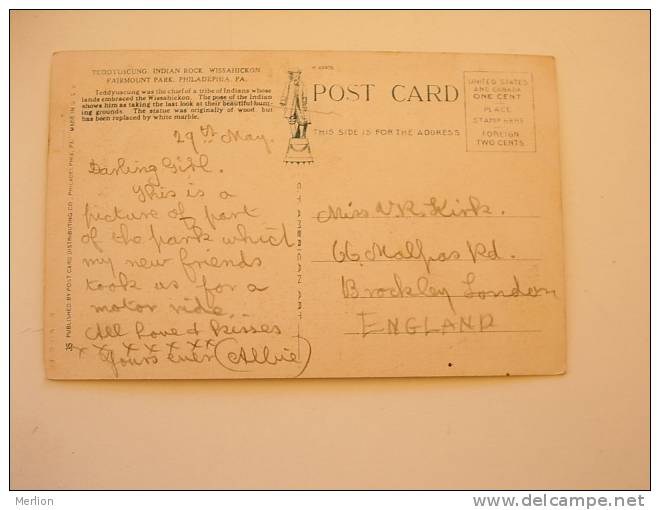 TEDDYUSCUNG INDIAN ROCK WISSAHICKON
FAIRMOUNT PARK, PHILADEPHIA, PA.
Teddyuscung was the chief of a tribe of Indians whose
lands embraced the Wissahickon. The pose of the Indian
shows him as taking the last look at their beautiful hunt-
ing grounds. The statue was originally of wood but
has been replaced by white marble.
29th May.
Darling Girl.
This is a
picture of part
of the park which
my new friends
took us for a
motor ride..
All Love & Kisses
x x x x x x x x
Yours ever (Albie)
35 PUBLISHED BY POST CARD DISTRIBUTING CO., PHILADELPHIA, PA. MADE IN U.S.A.
POST CARD
THIS SIDE IS FOR THE ADDRESS
UNITED STATES
AND CANADA
ONE CENT
PLACE
STAMP HERE
FOREIGN
TWO CENTS
Miss V.R. Kirk.
66, Malpas Rd.
Brockley London
ENGLAND
Merlion
www.delcampe.net